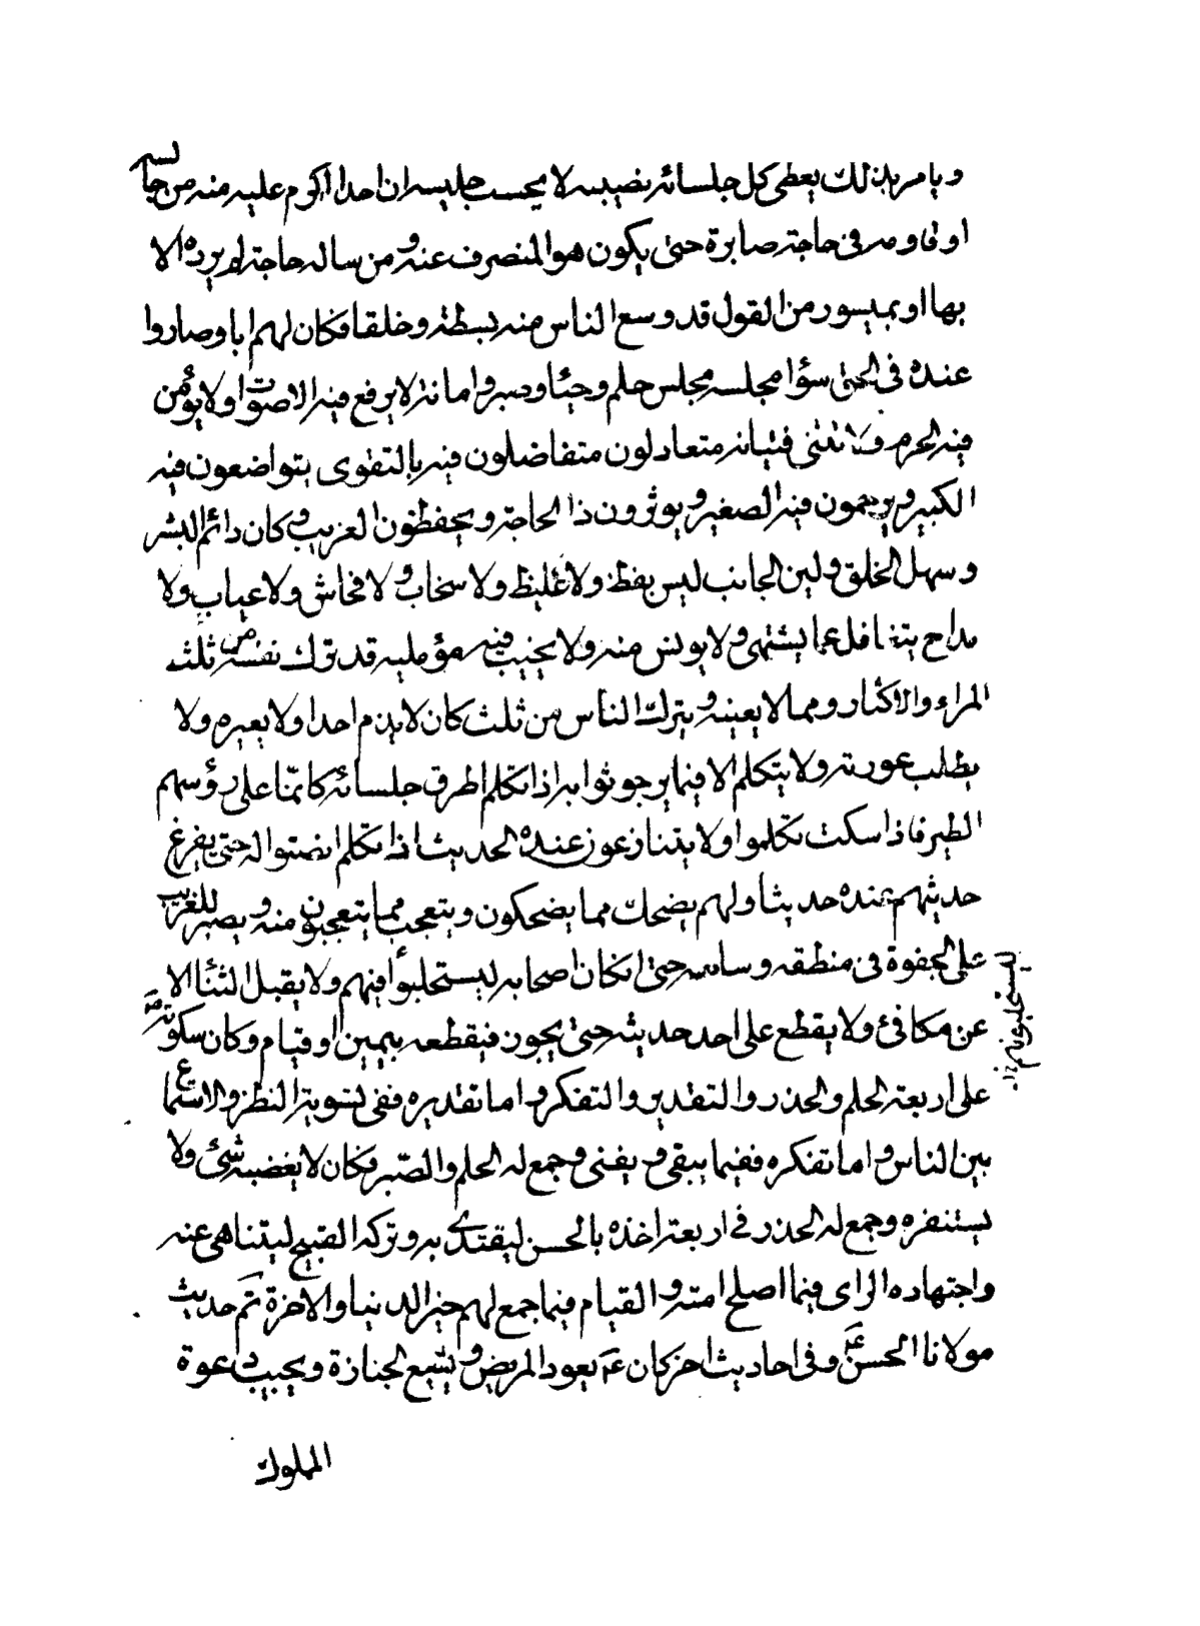 ويامر بذلك يعطى كل جلسائه نصيبه لا يحسب جليسه ان احدا اكرم عليه منه من جالسه
او قاومه في حاجة صابره حتى يكون هو المنصرف عنه ومن ساله حاجة لم يرده الا
بها او بميسور من القول قد وسع الناس منه بسطته وخلقا فكان لهم ابا وصاروا
عنده في الحق سؤا مجلسه مجلس حلم وحئا وصبر وامانة لا يرفع فيه الاصوات ولا يؤمن
فيه الحرم ولا تنثنى فتيانه متعادلون متفاضلون فيه بالتقوى يتواضعون فيه
الكبير ويرحمون فيه الصغير ويوثرون ذا الحاجة ويحفظون الغريب وكان دائم البشر
وسهل الخلق ولين الجانب ليس بفظ ولا غليظ ولا سخاب ولا فحاش ولا عياب ولا
مداح يتغافل عما يشتهى ولا يويس منه ولا يخيب فيه مؤمليه قد ترك نفسه من ثلث
المراء والاكثار ومما لا يعنيه ويترك الناس من ثلث كان لا يذم احدا ولا يعيره ولا
يطلب عورته ولا يتكلم الا فيما يرجو ثوابه اذا تكلم اطرق جلسائه كانمّا على رؤسهم
الطير فاذا سكت تكلموا ولا يتنازعون عنده الحديث اذا تكلم انصتوا له حتى يفرغ
حديثهم عنده حديث اولهم يضحك مما يضحكون ويتعجب مما يتعجبون منه ويصبر للغريب
على الجفوة في منطقه وسالمه حتى انكان اصحابه ليستحلبؤا فيهم ولا يقبل الثنٔا الا
عن مكافئ ولا يقطع على احد حديثه حتى يجون فيقطعه بيمين او قيام وكان سكوته صع
على اربعة الحلم والحذر والتقدير والتفكر واما تقديره ففى تسوية النظر والاستماع
بين الناس واما تفكره ففيما يبقى ويفنى وجمع له الحلم والصّبر فكان لا يغضبه شئ ولا
يستنفره وجمع له الحذر في اربعة اخذه بالحسن ليقتدى به وتركه القبيح ليتناهى عنه
واجتهاده الراى فيما اصلح امته والقيام فيما جمع لهم خير الدنيا والاخرة تم حديث
مولانا الحسن ع م وفى احاديث اخر كان ع م يعود المريض ويشيع الجنازة ويجيب دعوة
المملوك
ليستحلبونهم ١٢